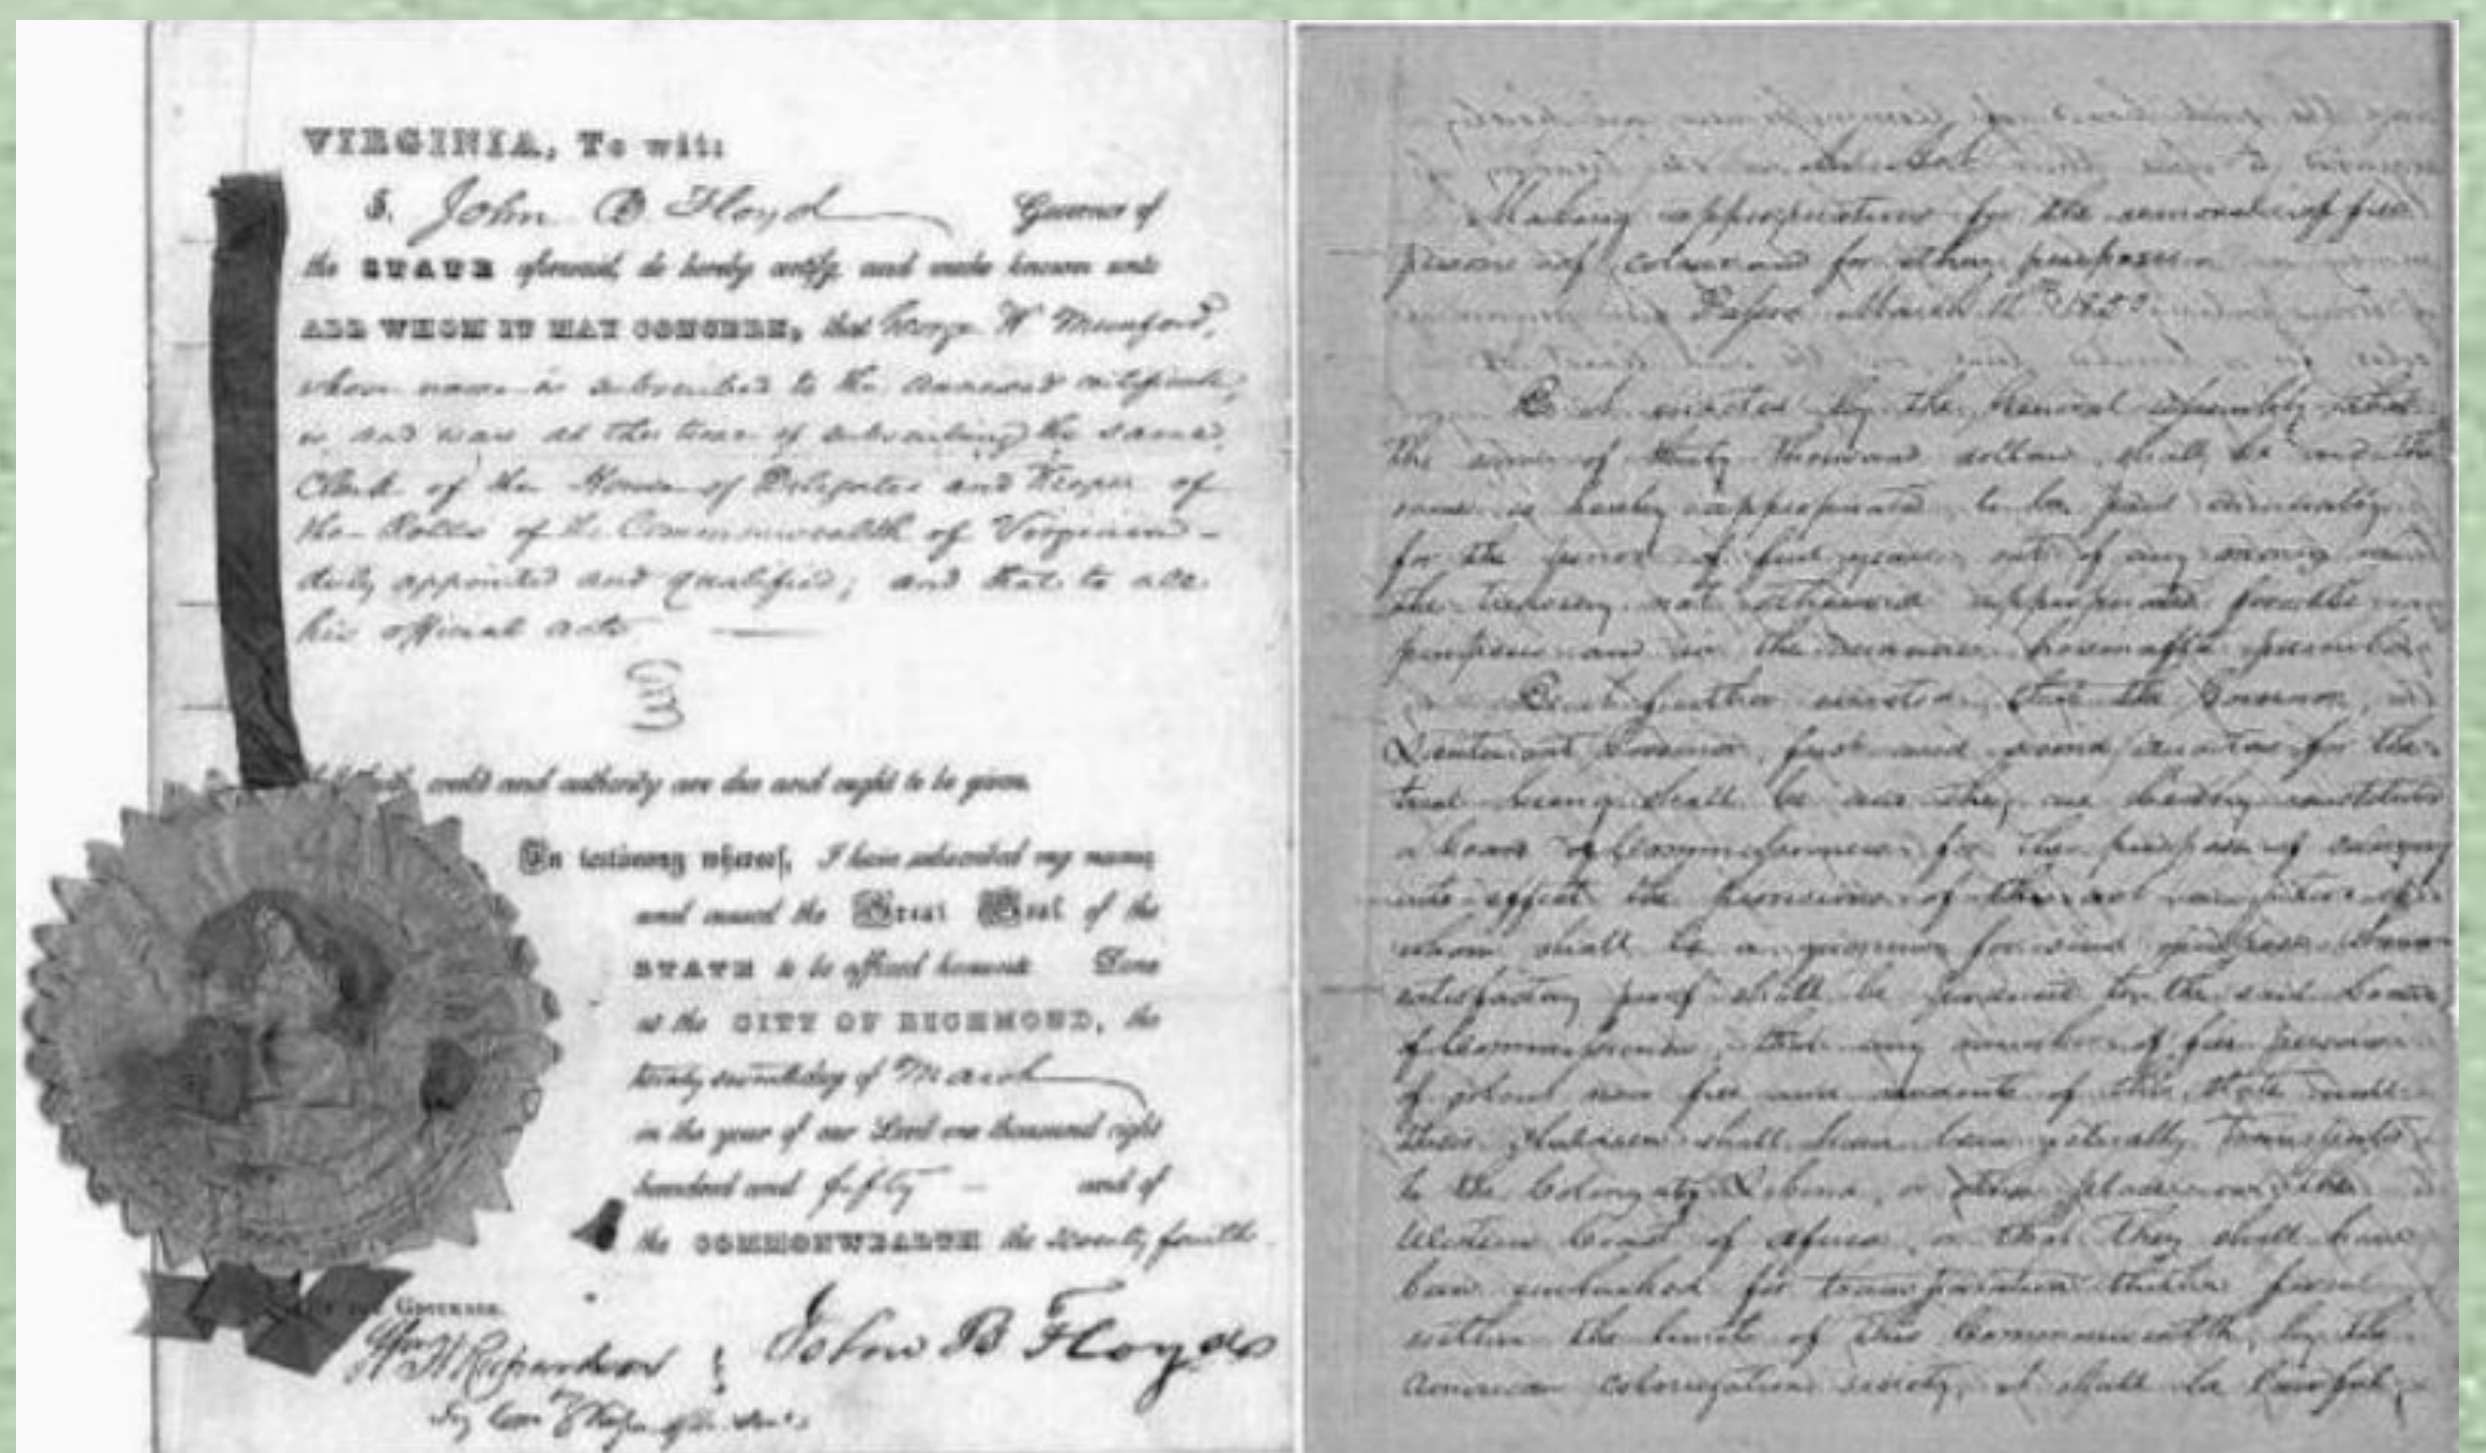 VIRGINIA, To wit:
I. John B Floyd Governor of
the STATE aforesaid, do hereby certify and make known unto
ALL WHOM IT MAY CONCERN, that George W Munford,
whose name is subscribed to the annexed certificate,
is, and was at the time of subscribing the same,
Clerk of the House of Delegates and Keeper of
the Rolls of the Commonwealth of Virginia -
duly appointed and qualified; and that to all
his official acts
faith, credit and authority are due and ought to be given.
In testimony whereof, I have subscribed my name,
and caused the Great Seal of the
STATE to be affixed hereunto Done
at the CITY OF RICHMOND, the
twenty day of March
in the year of our Lord one thousand eight
hundred and fifty - and of
the COMMONWEALTH the Seventy fourth
GOVERNOR.
Wm H Richardson John B Floyd
An Act
Making appropriations for the removal of free
persons of colour and for other purposes
March 1850
Be it enacted by the General Assembly that
the sum of thirty thousand dollars shall be and the
same is hereby appropriated to be paid annually
for the period of five years out of any money in
the treasury not otherwise appropriated for the
purposes and in the manner hereinafter
Be it further enacted that the Governor,
Lieutenant Governor, first and second auditor for the
time being shall be and they are hereby constituted
a board of Commissioners for the purpose of carrying
into effect the provisions of this act
whom shall be a quorum for
satisfactory proof shall be produced to the said board
of Commissioners, that any number of free persons
of colour now free and residents of this state and
their children shall have been actually transported
to the Colony at Liberia, or other place on the
Western Coast of Africa, or that they shall have
been embarked for transportation thither from
within the limits of this Commonwealth, by the
American colonization society, it shall be lawful